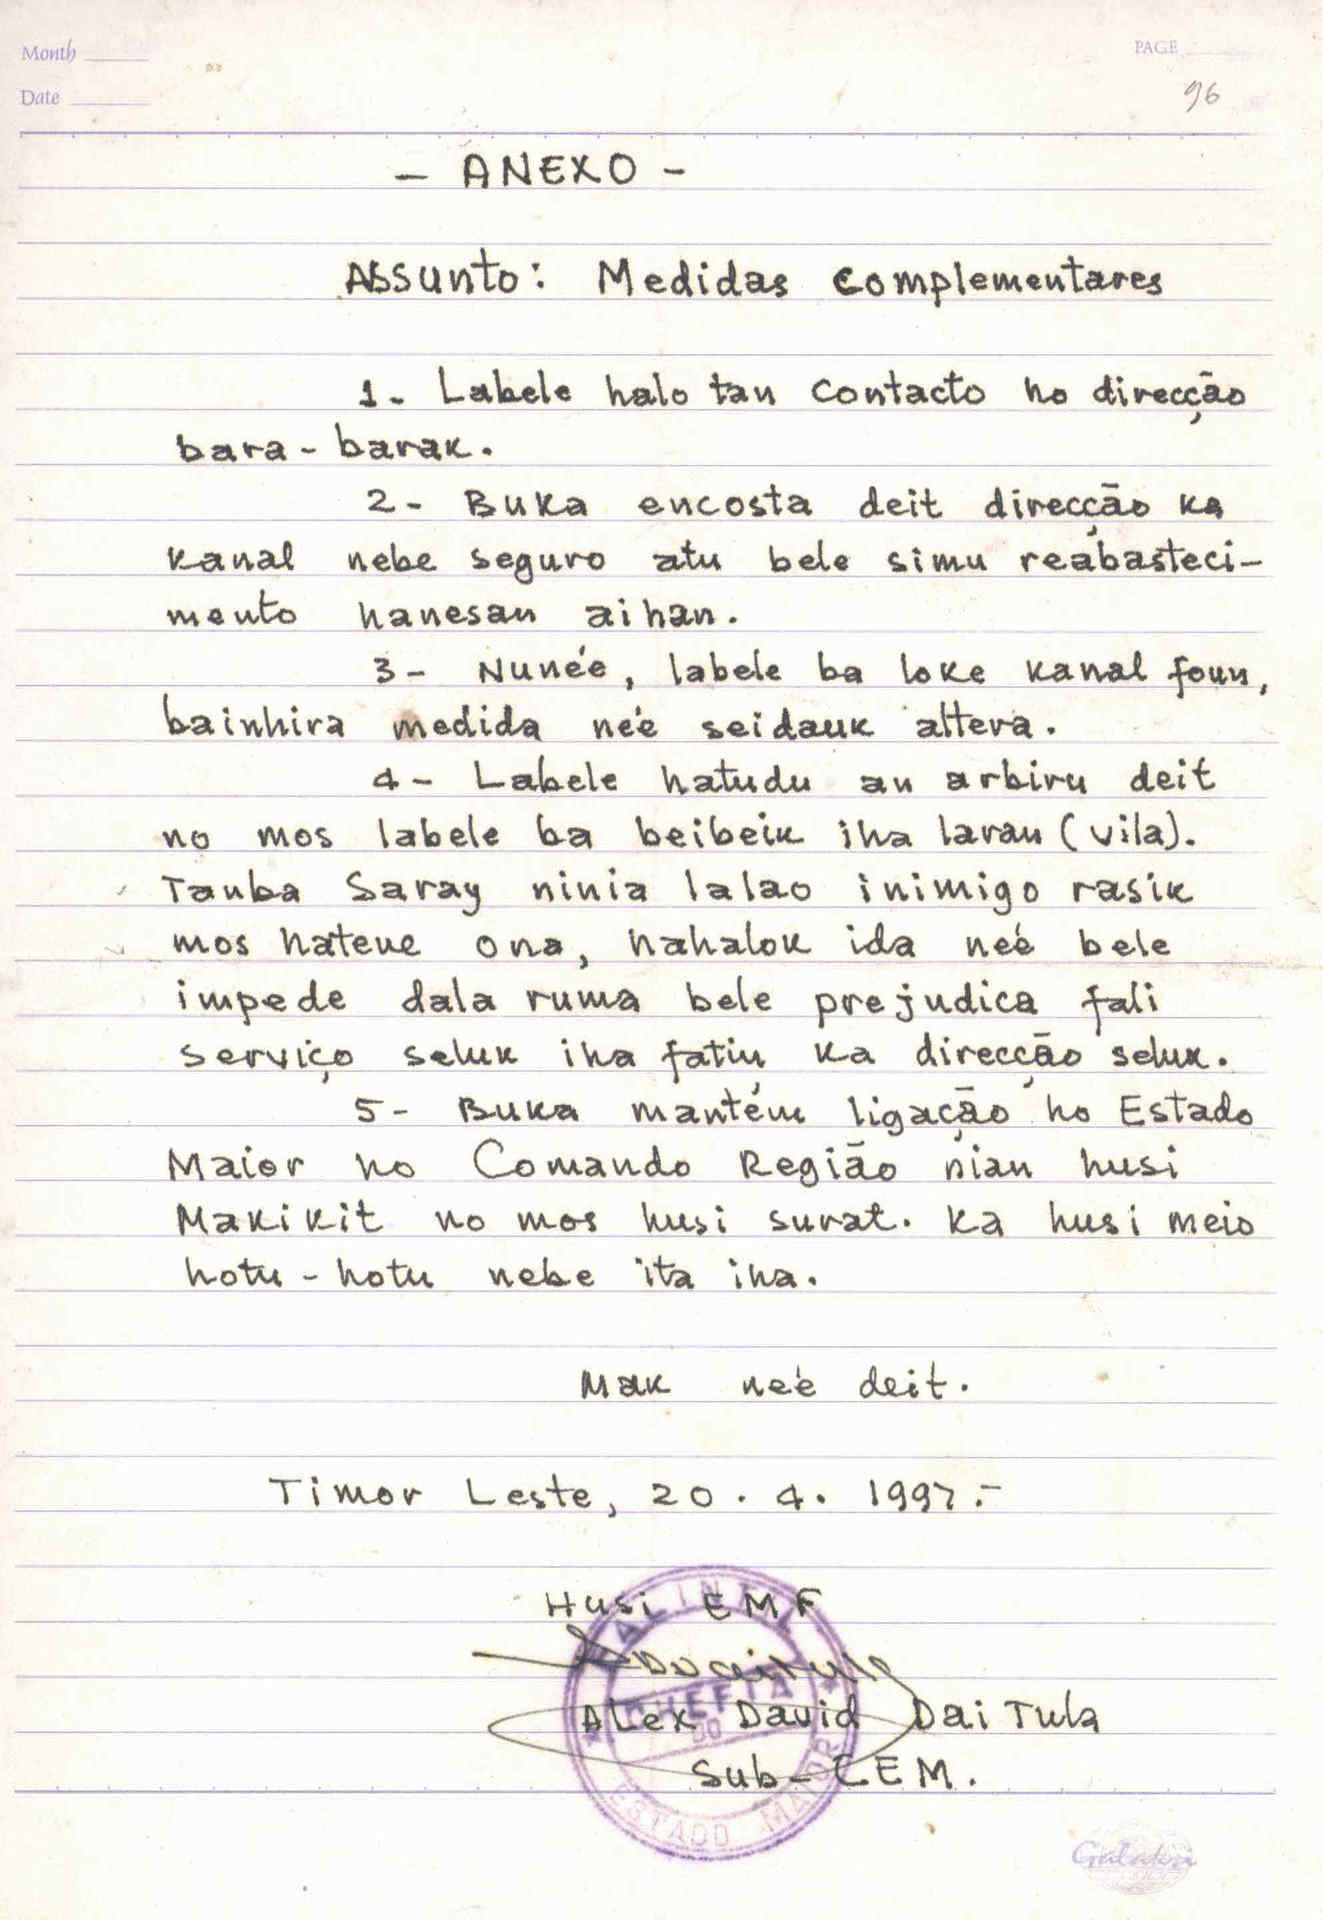 Month
PAGE
Date
96
- ANEXO -
Assunto: Medidas complementares
1- Labele halo tan contacto ho direcção
bara-barak.
2- Buka encosta deit direcção ka
kanal nebe seguro atu bele simu reabasteci-
mento hanesan aihan.
3- Nuneé, labele ba loke kanal foun,
bainhira medida neé seidauk altera.
4- Labele hatudu an arbiru deit
no mos labele ba beibeik iha laran (vila).
Tanba Saray ninia lalao inimigo rasik
mos hatene ona, hahalok ida neé bele
impede dala ruma bele prejudica fali
serviço seluk iha fatin ka direcção seluk.
5- Buka mantém ligação ho Estado
Maior ho Comando Região nian husi
Makikit no mos husi surat. Ka husi meio
hotu-hotu nebe ita iha.
Mak neé deit.
Timor Leste, 20.4.1997.-
Husi EMF
FALINTIL
CHEFIA
DO
ESTADO MAIOR
Alex David DaiTula
Sub-CEM.
Galaksi